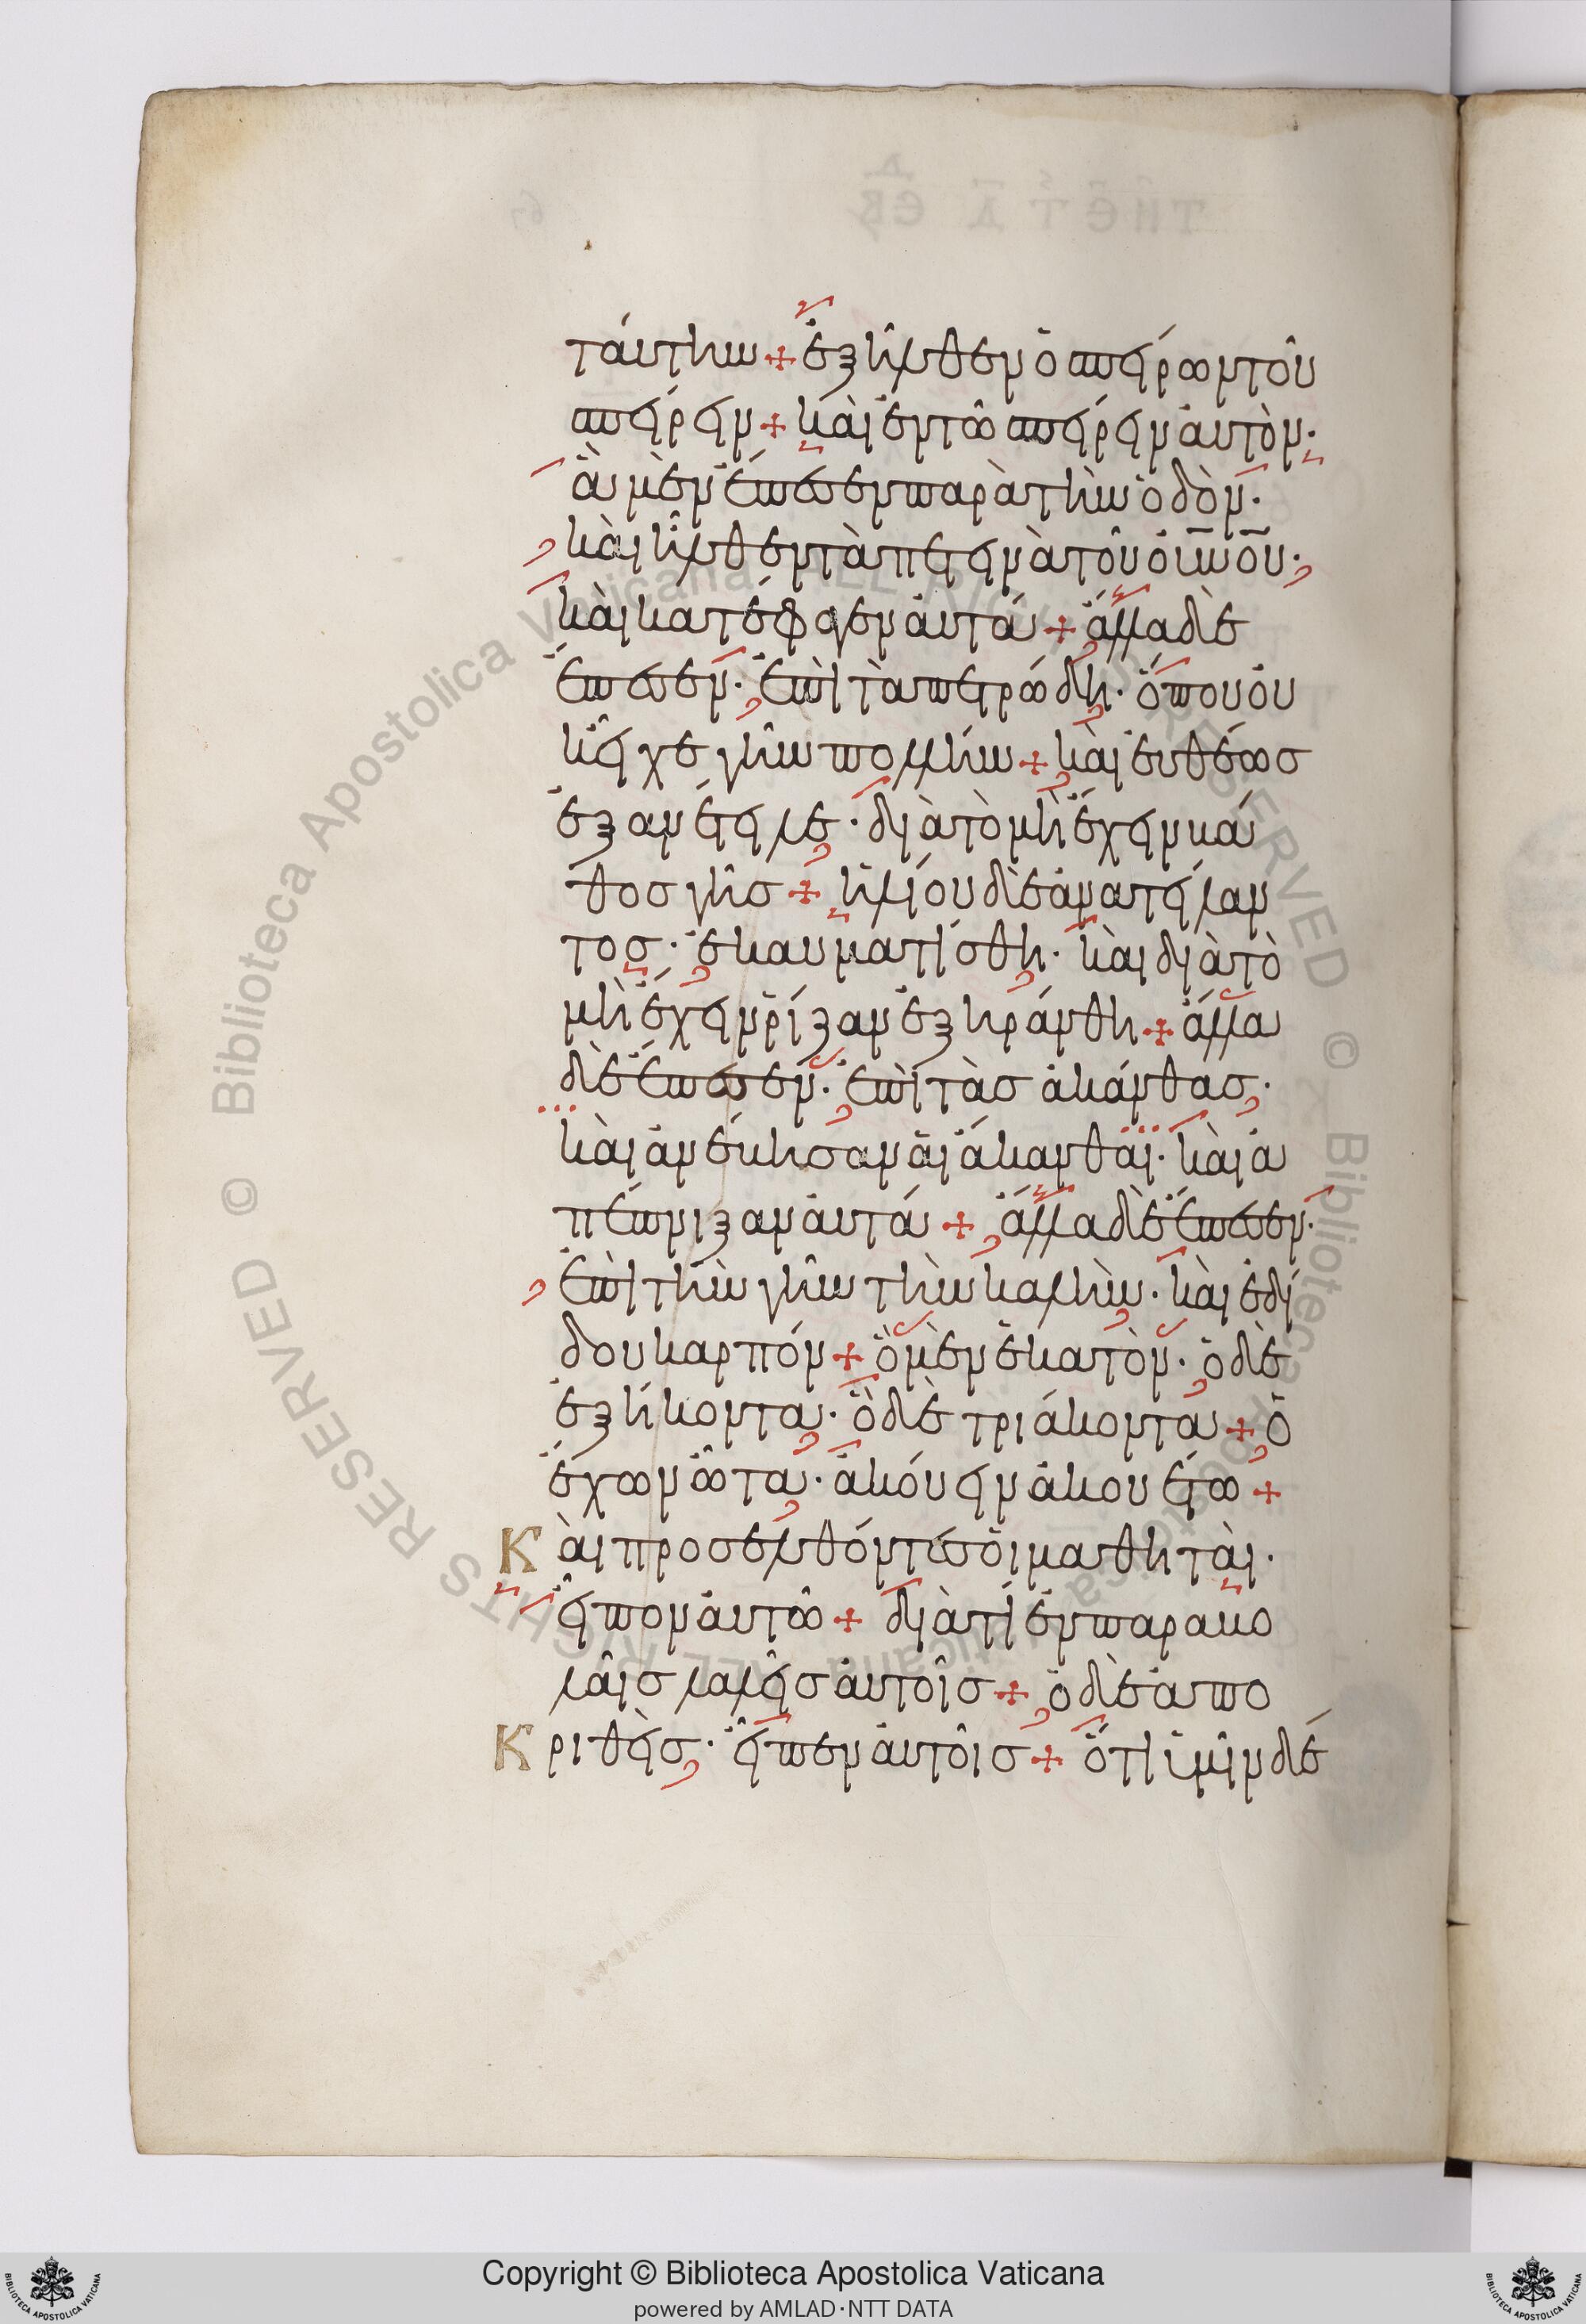 ταύτην + ἐξῆλθεν ὁ σπείρων τοῦ
σπείρειν + καὶ ἐν τῶ σπείρειν αὐτὸν·
ἃ μὲν ἔπεσεν παρὰ τὴν ὁδὸν·
καὶ ἦλθεν τὰ πετεινὰ τοῦ οὐ̅ν̅ο̅υ̅·
καὶ κατέφαγεν αὐτά + ἄλλα δὲ
ἔπεσεν· ἐπὶ τὰ πετρώδη· ὅπου οὐ
κ εἶχε γῆν πολλήν + καὶ εὐθέωσ
ἐξανέτειλε· διὰ τὸ μὴ ἔχειν βά
θοσ γῆσ + ἡλίου δὲ ἀνατείλαν
τοσ· ἐκαυματίσθη· καὶ διὰ τὸ
μὴ ἔχειν ῥίζαν ἐξηράνθη + ἄλλα
δὲ ἔπεσεν· ἐπὶ τὰσ ἀκάνθασ·
καὶ ἀνέβησαν αἱ ἄκανθαι· καὶ ἀ
πέπνιξαν αὐτά + ἄλλα δὲ ἔπεσεν·
ἐπὶ τὴν γῆν τὴν καλὴν· καὶ ἐδί
δου καρπόν + ὃ μὲν ἑκατὸν· ὃ δὲ
ἑξήκοντα· ὃ δὲ τριάκοντα + ὁ
ἔχων ὦτα· ἀκούειν ἀκουέτω +
Καὶ προσελθόντεσ οἱ μαθηταὶ·
εἶπον αὐτῶ + διὰ τί ἐν παραβο
λαῖσ λαλεῖσ αὐτοῖσ + ὁ δὲ ἀπο
Κριθεὶσ· εἶπεν αὐτοῖσ + ὅτι ὑμῖν δέ
Copyright © Biblioteca Apostolica Vaticana
powered by AMLAD·NTT DATA